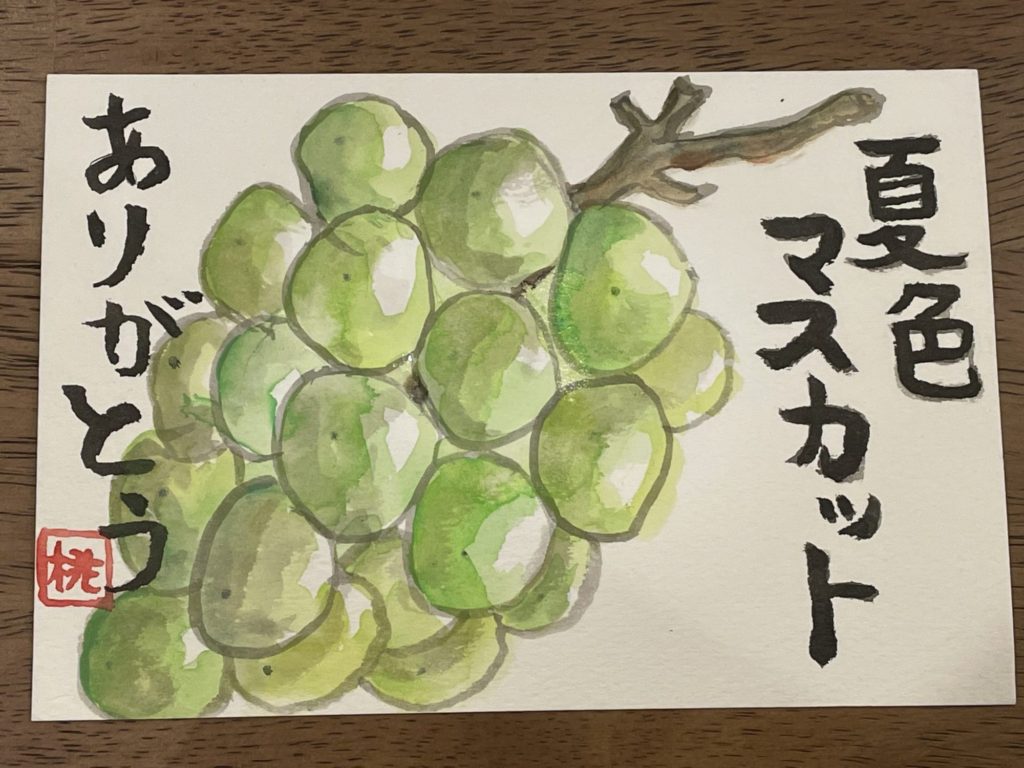 夏色
マスカット
ありがとう
桃